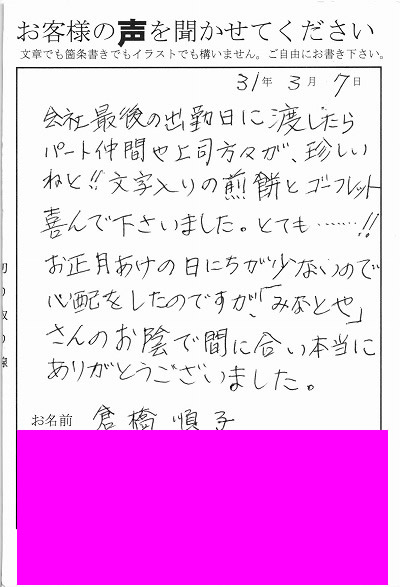 お客様の声を聞かせてください
文章でも箇条書きでもイラストでも構いません。ご自由にお書き下さい。
31年 3月 7日
会社最後の出勤日に渡したら
パート仲間や上司方々が、珍しい
ねと!!文字入りの煎餅とゴーフレット
喜んで下さいました。とても……!!
お正月あけの日にちが少ないので
心配をしたのですが、「みなとや」
さんのお陰で間に合い本当に
ありがとうございました。
お名前 倉橋順子
切り取り線